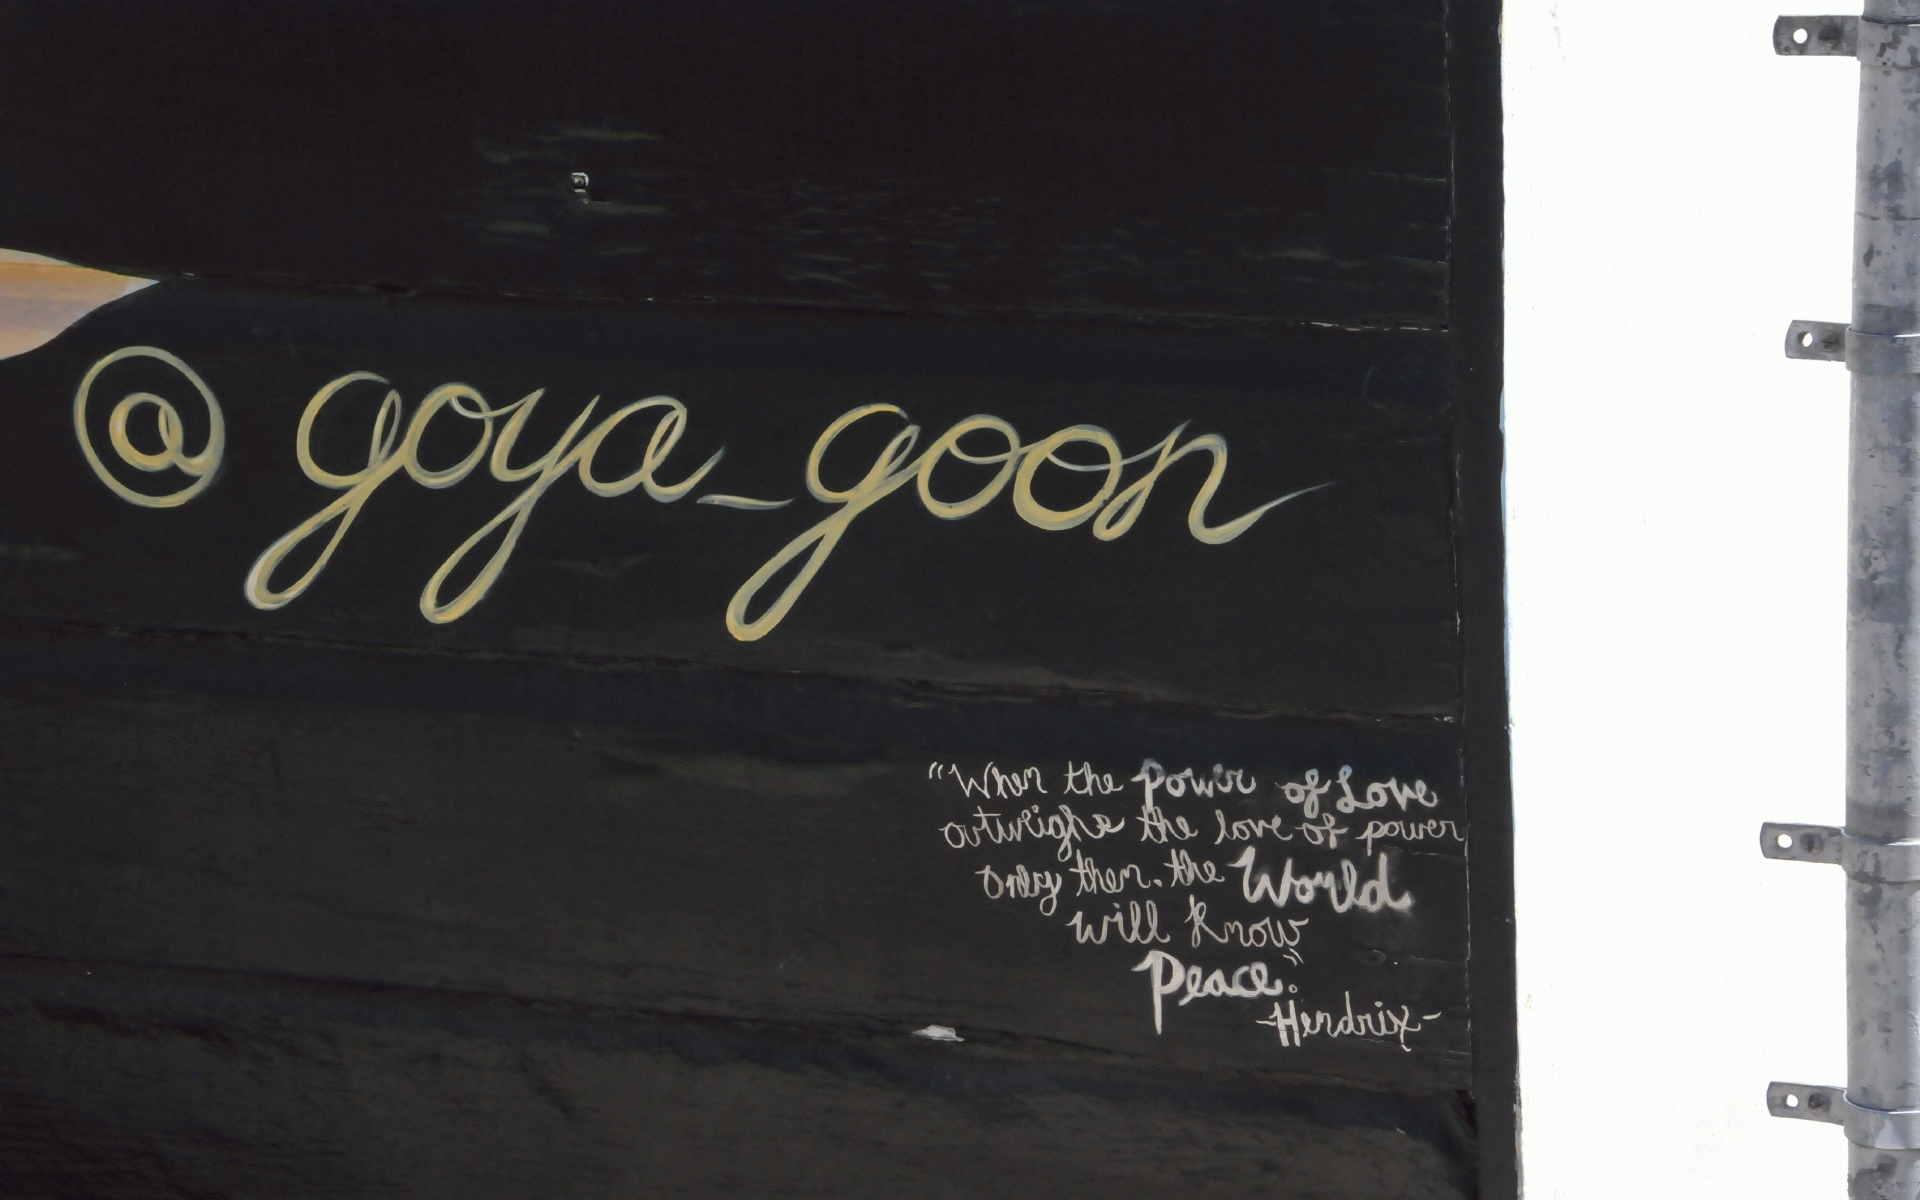 @goya_goon
"When the power of Love
outweighs the love of power
only then. the World
will know
Peace."
-Hendrix-